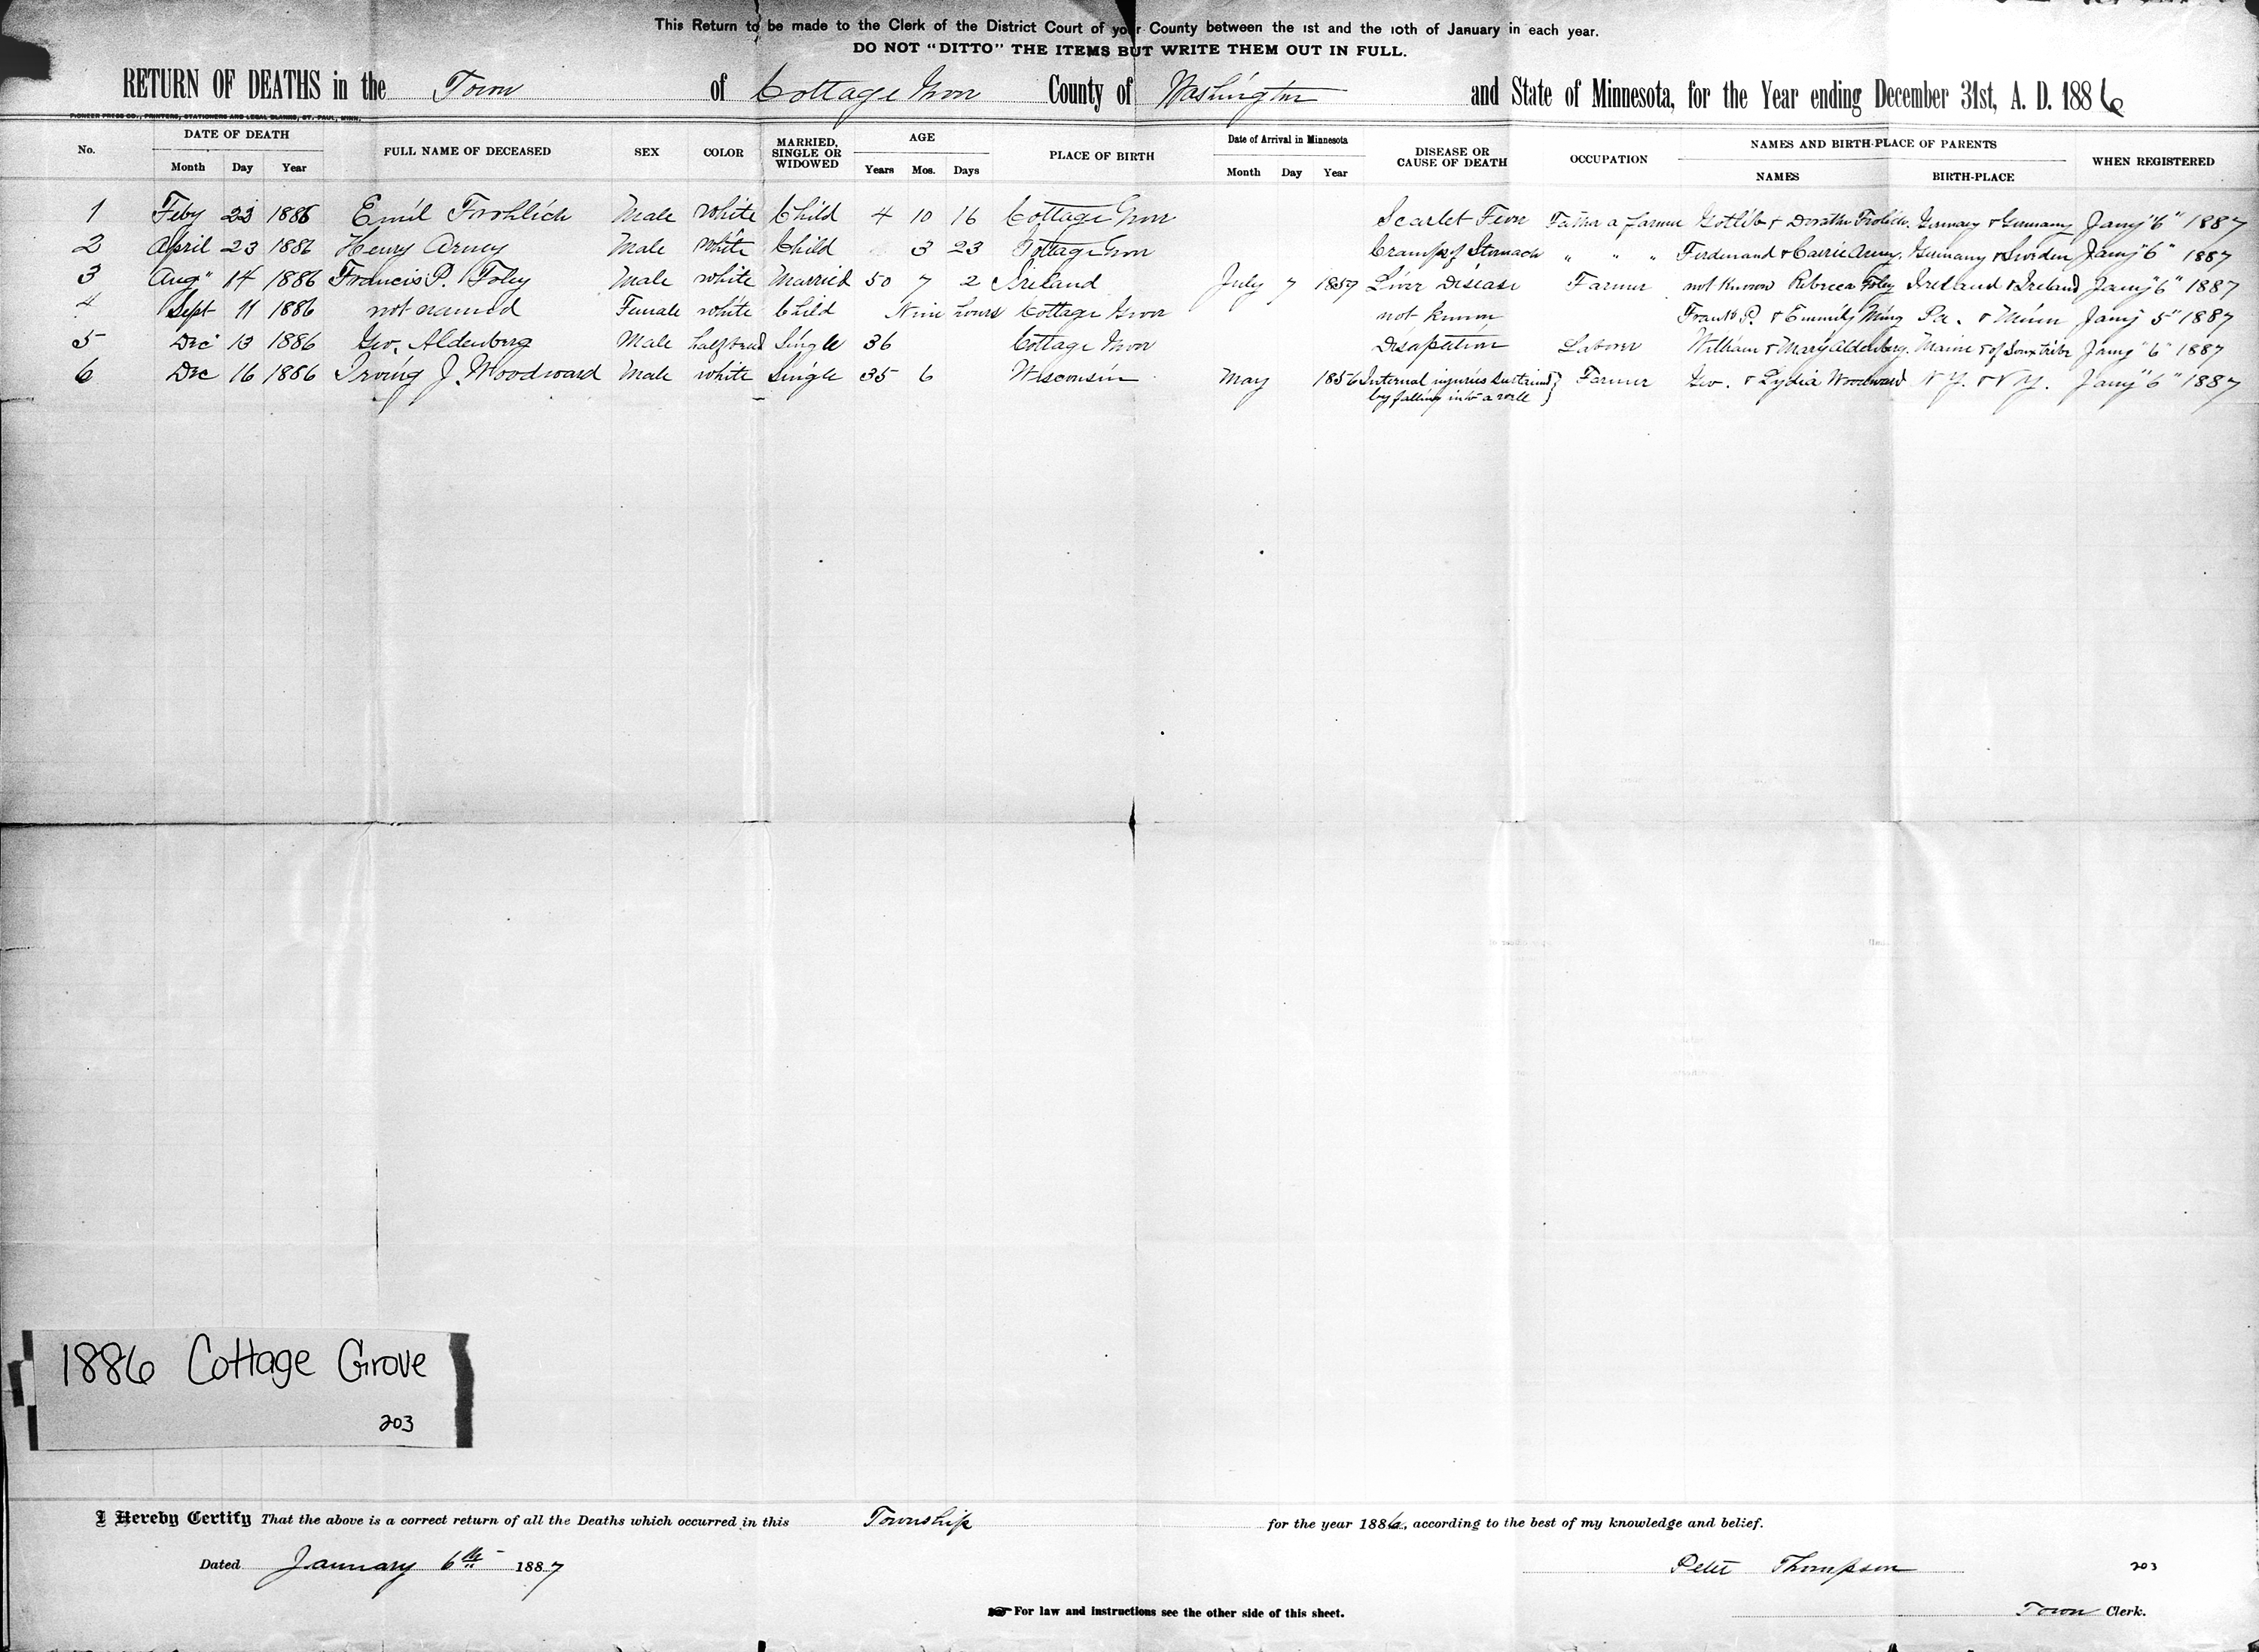 This Return to be made to the Clerk of the District Court of your County between the 1st and the 10th of January in each year.
DO NOT "DITTO" THE ITEMS BUT WRITE THEM OUT IN FULL.
RETURN OF DEATHS in the Town of Cottage Grove County of Washington and State of Minnesota, for the Year ending December 31st, A. D. 1886
PIONEER PRESS CO., PRINTERS, STATIONERS AND LEGAL BLANKS, ST. PAUL, MINN.
No. DATE OF DEATH FULL NAME OF DECEASED SEX COLOR MARRIED, SINGLE OR WIDOWED AGE PLACE OF BIRTH Date of Arrival in Minnesota DISEASE OR CAUSE OF DEATH OCCUPATION NAMES AND BIRTH-PLACE OF PARENTS WHEN REGISTERED
Month Day Year Years Mos. Days Month Day Year NAMES BIRTH-PLACE
1 Feby 23 1886 Emil Frohlich Male White Child 4 10 16 Cottage Grove Scarlet Fever Father a farmer Gotlib & Dorathe Frolich. Germany & Germany Jany "6" 1887
2 April 23 1886 Henry Arney Male White Child 3 23 Cottage Grove Cramps of Stomach " " " Ferdenand & Carrie Arney. Germany & Sweden Jany "6" 1887
3 Aug" 14 1886 Francis P. Foley Male white Married 50 7 2 Ireland July 7 1857 Liver Disease Farmer not Known Rebecca Foley Ireland & Ireland Jany "6" 1887
4 Sept 11 1886 not named Female white Child Nine hours Cottage Grove not known Frank P. & Emmily Ming Pa. & Minn Jany 5" 1887
5 Dec 13 1886 Geo. Aldenberg Male half bred Single 36 Cottage Grove Disapation Laborer William & Mary Aldenberg. Maine & of Soux tribe Jany "6" 1887
6 Dec 16 1886 Irving J. Woodward Male white Single 35 6 Wisconsin May 1856 Internal injuries sustained } Farmer Geo. & Lydia Woodward N Y. & N Y. Jany "6" 1887
by falling into a well
1886 Cottage Grove
203
I Hereby Certify That the above is a correct return of all the Deaths which occurred in this Township for the year 1886, according to the best of my knowledge and belief.
Dated January 6th 1887 Peter Thompson 203
For law and instructions see the other side of this sheet. Town Clerk.